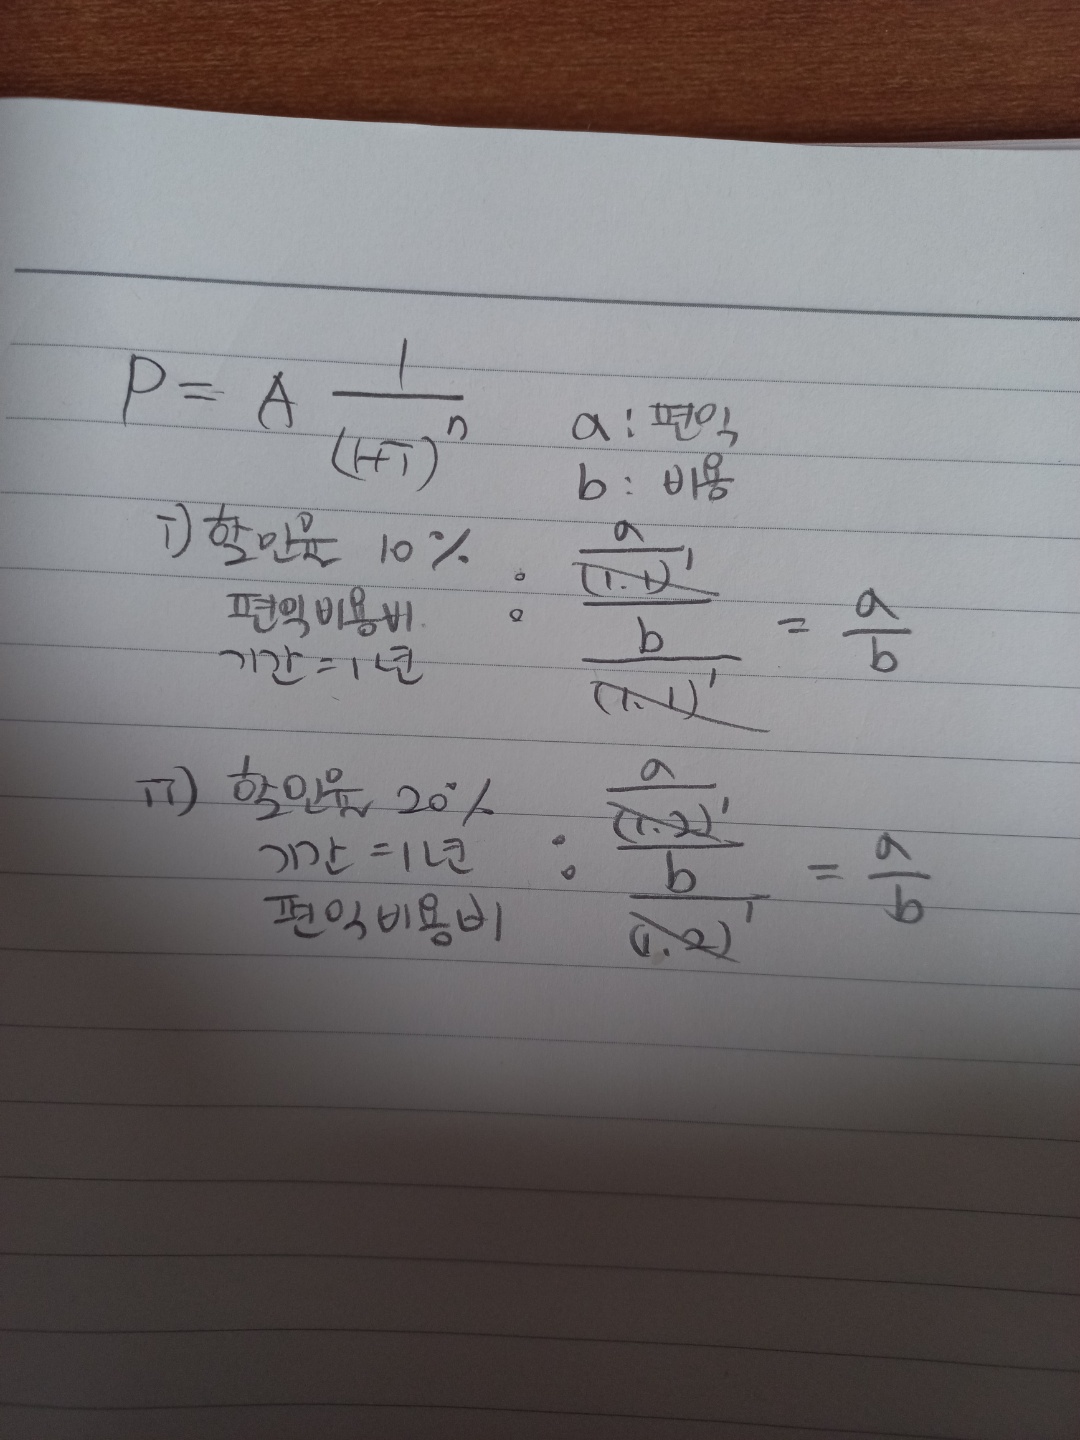 P = A 1/(1+i)^n
a : 편익
b : 비용
i) 할인율 10%
편익비용비
기간 = 1년
: (a/(1.1)^1)/(b/(1.1)^1) = a/b
ii) 할인율 20%
기간 = 1년
편익비용비
: (a/(1.2)^1)/(b/(1.2)^1) = a/b